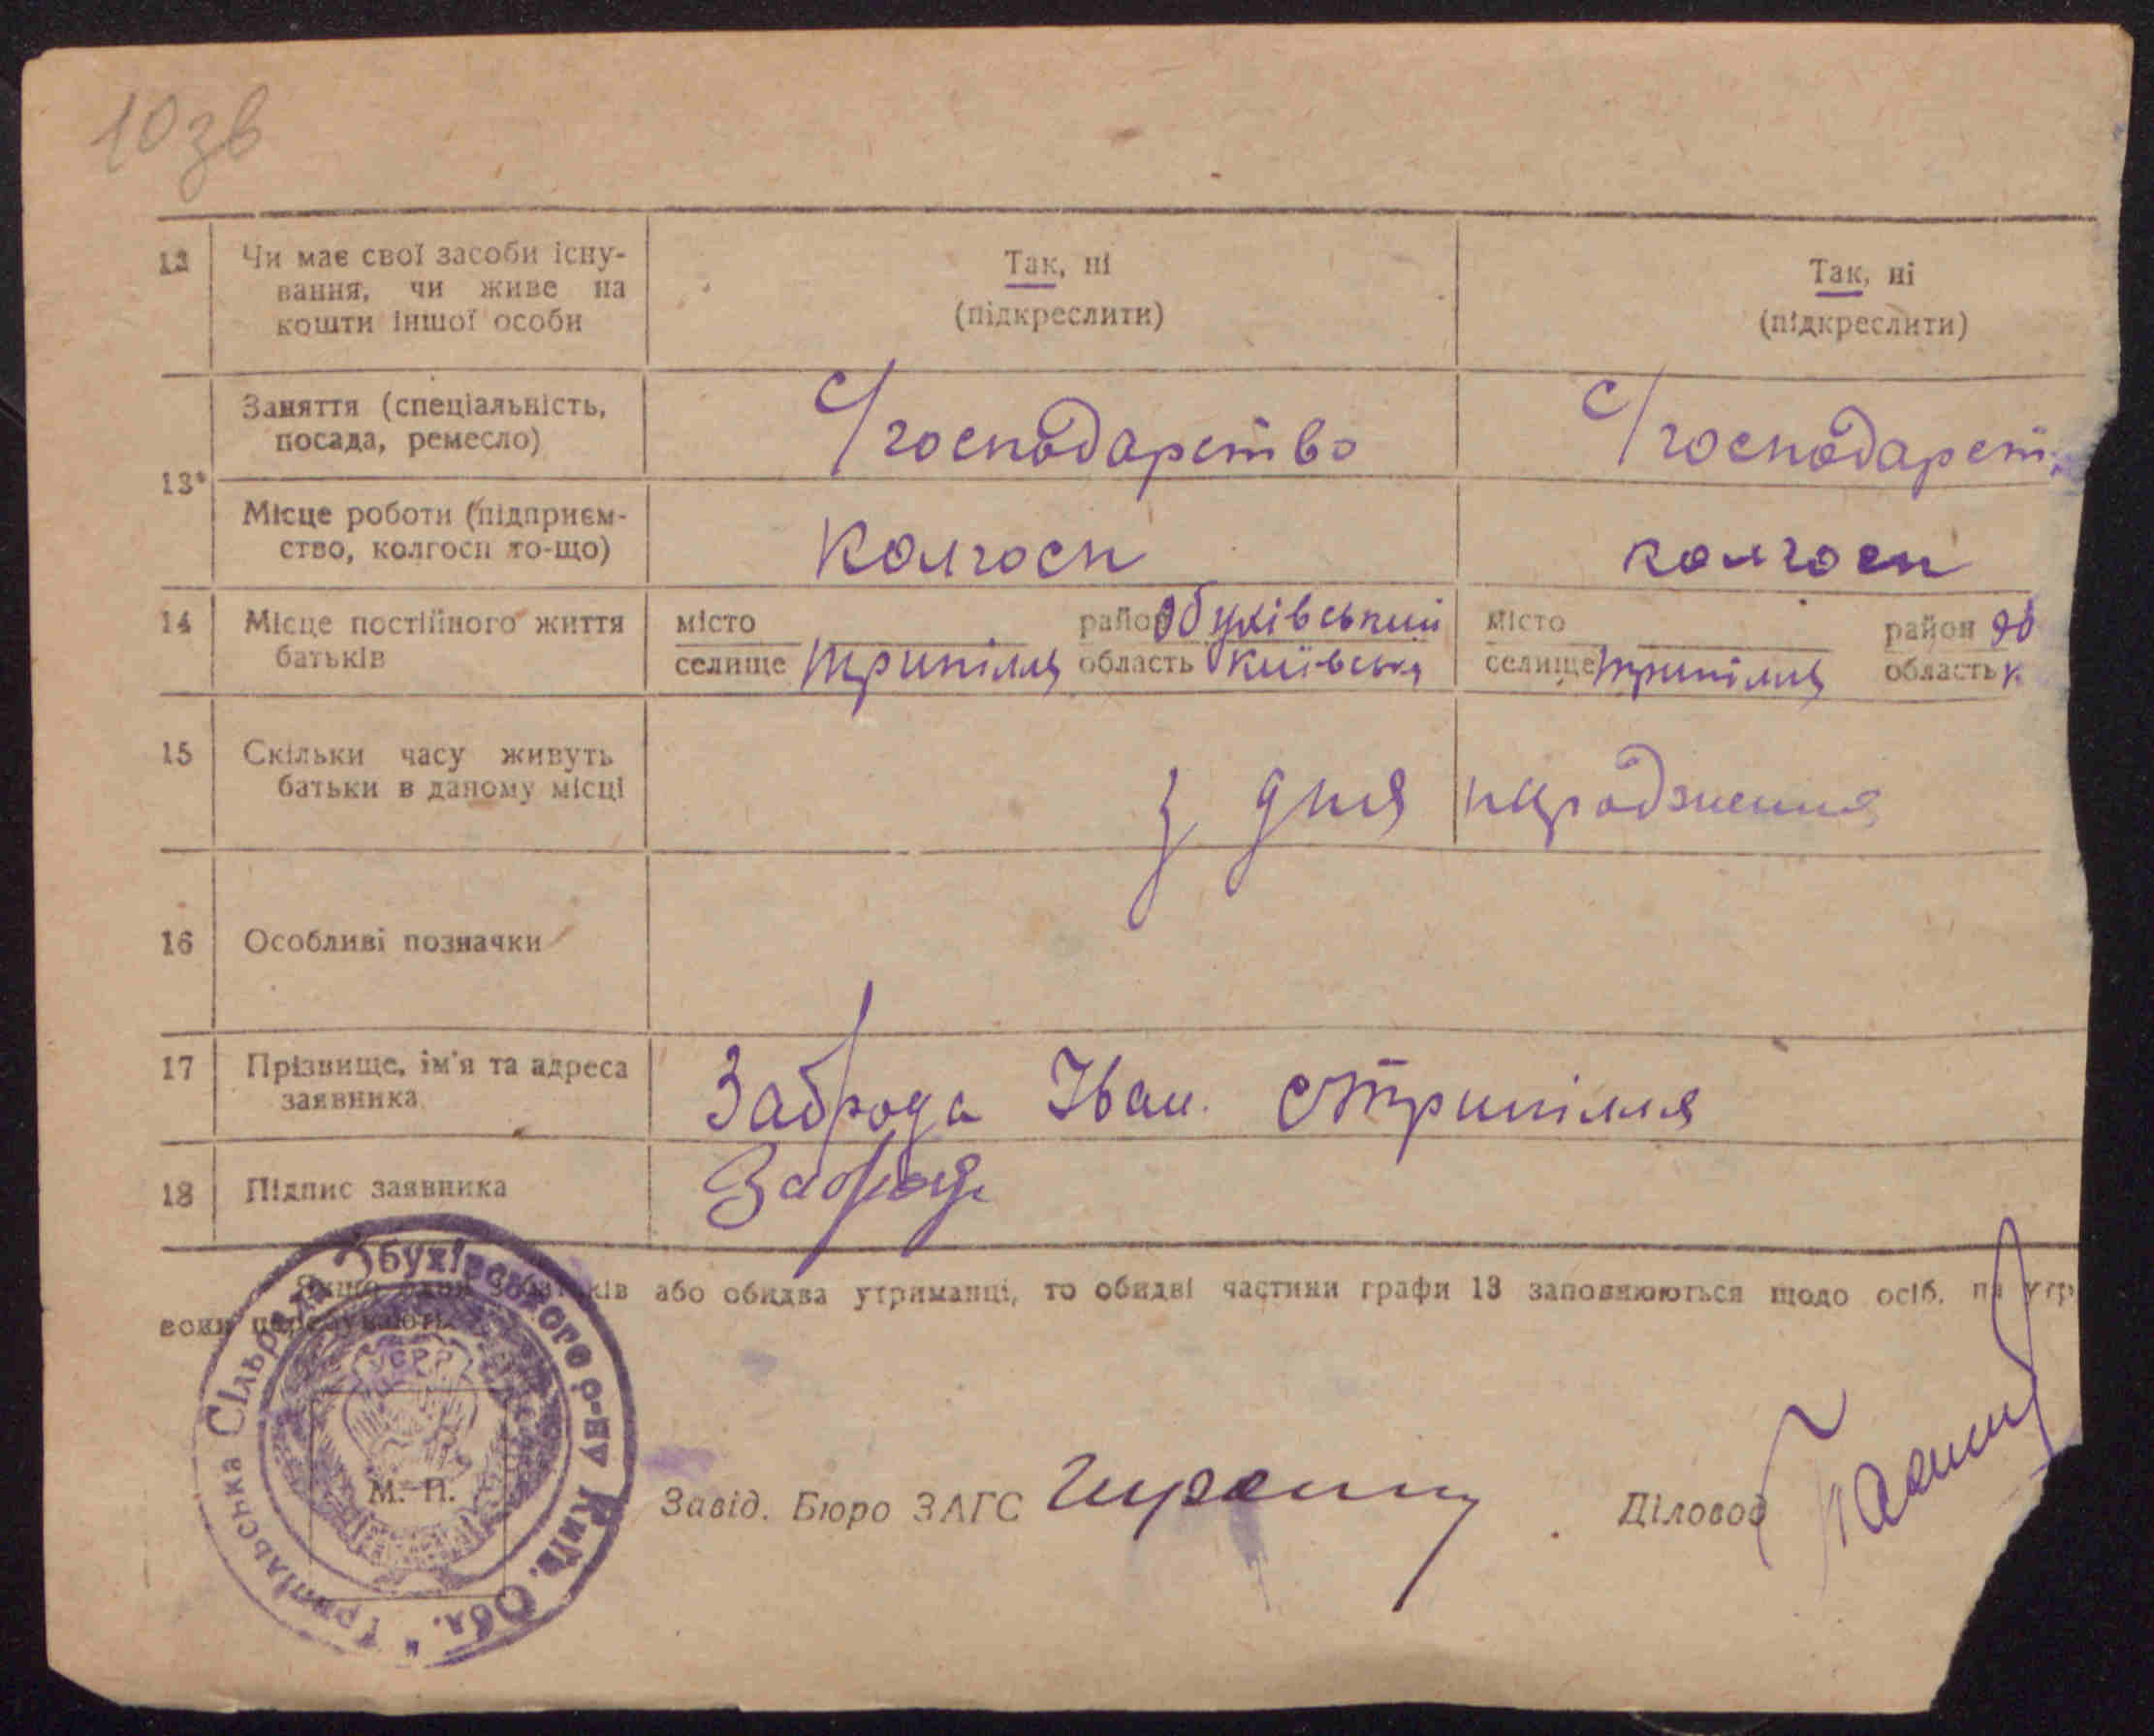 10зв
12 Чи має свої засоби існу-
вання, чи живе на
кошти іншої особи
Так, ні
(підкреслити)
Так, ні
(підкреслити)
13* Заняття (спеціальність,
посада, ремесло)
с/господарство
с/господарст
Місце роботи (підприєм-
ство, колгосп то-що)
Колгосп
колгосп
14 Місце постійного життя
батьків
місто район Обухівський
селище Трипілля область Київська
місто район Об
селище Трипілля область К
15 Скільки часу живуть
батьки в даному місці
з дня народження
16 Особливі позначки
17 Прізвище, ім'я та адреса
заявника
Заброда Іван. с Трипілля
18 Підпис заявника
Заброда
Якщо один з батьків або обидва утриманці, то обидві частини графи 13 заповнюються щодо осіб, на утр
вони перебувають.
Трипільська Сільрада Обухівського р-ну Київ. Обл.
УСРР
М. П.
Завід. Бюро ЗАГС
Діловод